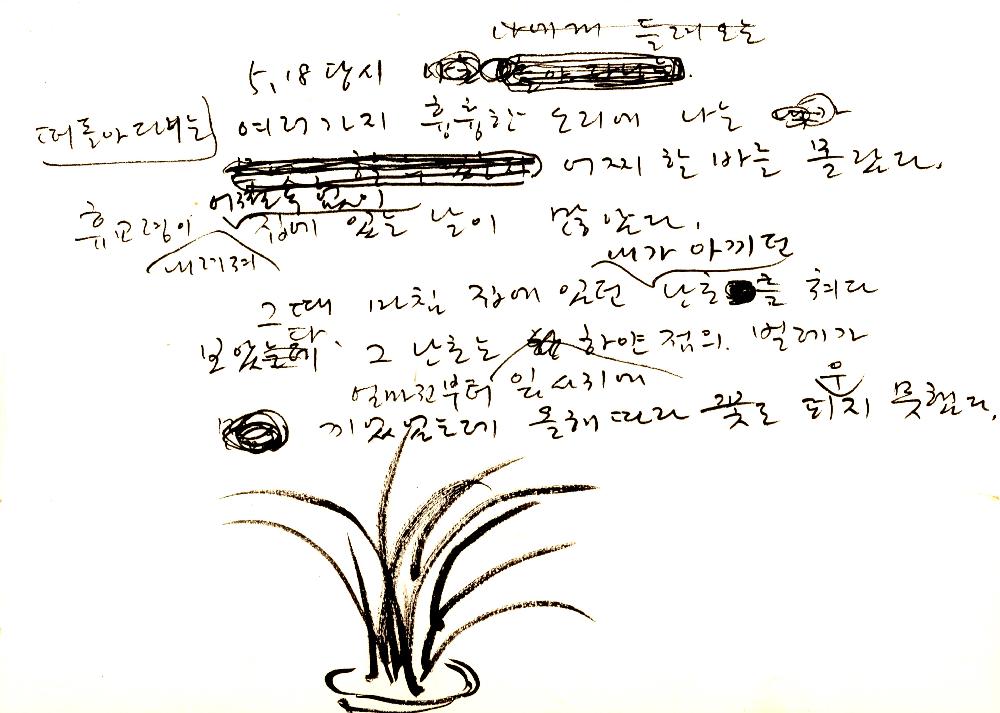 나에게 들려오는
5,18 당시
떠돌아 다니는 여러가지 흉흉한 소리에 나는
어찌 할 바를 몰랐다.
어쩔 수 없이
휴교령이 집에 있는 날이 많았다.
내려져
내가 아끼던
그때 마침 집에 있던 난초를 쳐다
보았는데. 그 난초는 하얀 점의 벌레가
다
얼마전부터 잎사귀에
우
끼었는데 올해따라 꽃도 피지 못했다.